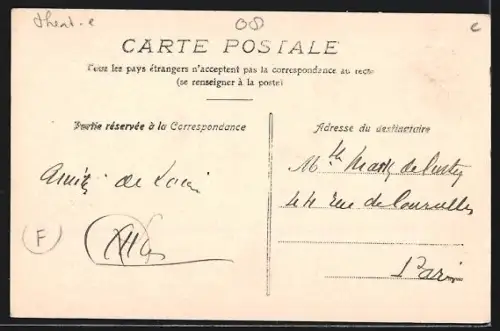 theat. e
08
c
CARTE POSTALE
Tous les pays étrangers n'acceptent pas la correspondance au recto
(se renseigner à la poste)
Partie réservée à la Correspondance
Adresse du destinataire
de
44 rue de Courcelles
Paris
F